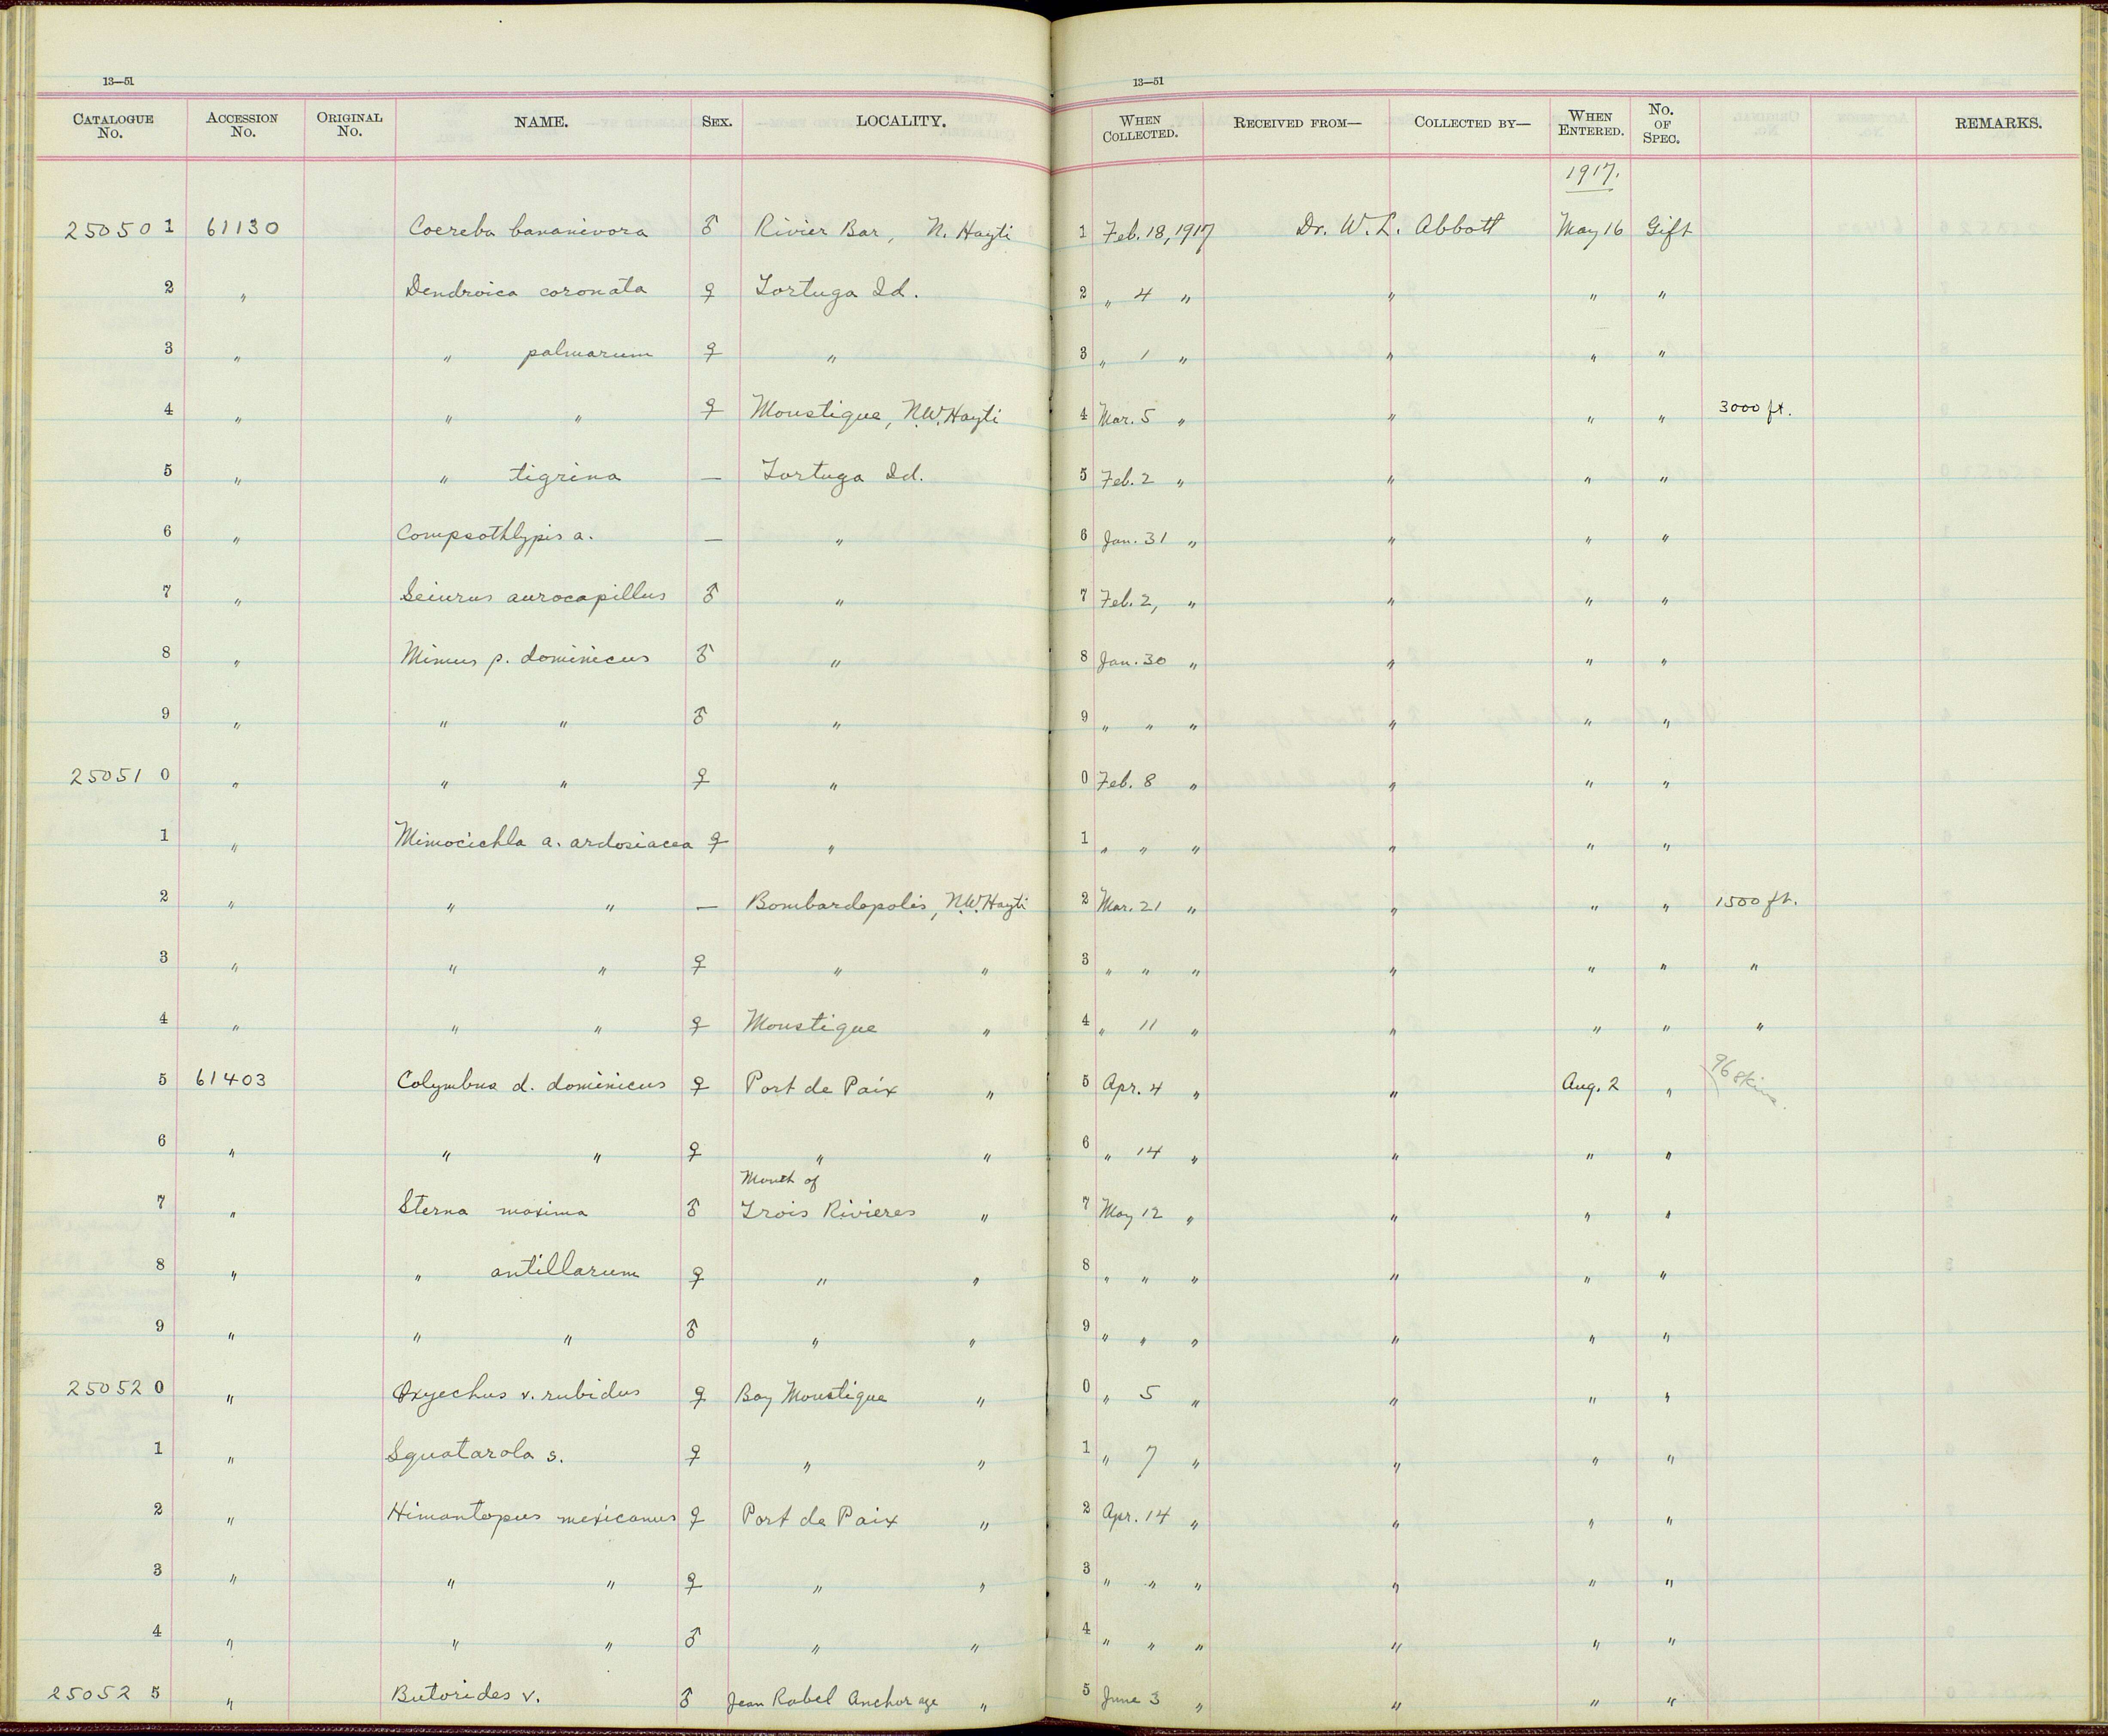 13—51
13—51
CATALOGUE No. ACCESSION No. ORIGINAL No. NAME. SEX. LOCALITY. WHEN COLLECTED. RECEIVED FROM— COLLECTED BY— WHEN ENTERED. No. OF SPEC. REMARKS.
1917.
25050 1 61130 Coereba bananivora ♂ Rivier Bar, N. Hayti 1 Feb. 18, 1917 Dr. W. L. Abbott May 16 Gift
2 " Dendroica coronata ♀ Tortuga Id. 2 " 4 " " " "
3 " " palmarum ♀ " 3 " 1 " " " "
4 " " " ♀ Moustique, N.W. Hayti 4 Mar. 5 " " " " 3000 ft.
5 " " tigrina — Tortuga Id. 5 Feb. 2 " " " "
6 " Compsothlypis a. — " 6 Jan. 31 " " " "
7 " Seiurus aurocapillus ♂ " 7 Feb. 2, " " " "
8 " Mimus p. dominicus ♂ " 8 Jan. 30 " " " "
9 " " " ♂ " 9 " " " " " "
25051 0 " " " ♀ " 0 Feb. 8 " " " "
1 " Mimocichla a. ardosiacea ♀ " 1 " " " " " "
2 " " " — Bombardopolis, N.W. Hayti 2 Mar. 21 " " " " 1500 ft.
3 " " " ♀ " " 3 " " " " " " "
4 " " " ♀ Moustique " 4 " 11 " " " " "
5 61403 Colymbus d. dominicus ♀ Port de Paix " 5 Apr. 4 " " Aug. 2 " 96 skins.
6 " " " ♀ " " 6 " 14 " " " "
Mouth of
7 " Sterna maxima ♂ Trois Rivieres " 7 May 12 " " " "
8 " " antillarum ♀ " " 8 " " " " " "
9 " " " ♂ " " 9 " " " " " "
25052 0 " Oxyechus v. rubidus ♀ Bay Moustique " 0 " 5 " " " "
1 " Squatarola s. ♀ " " 1 " 7 " " " "
2 " Himantopus mexicanus ♀ Port de Paix " 2 Apr. 14 " " " "
3 " " " ♀ " " 3 " " " " " "
4 " " " ♂ " " 4 " " " " " "
25052 5 " Butorides v. ♂ Jean Rabel Anchorage " 5 June 3 " " " "